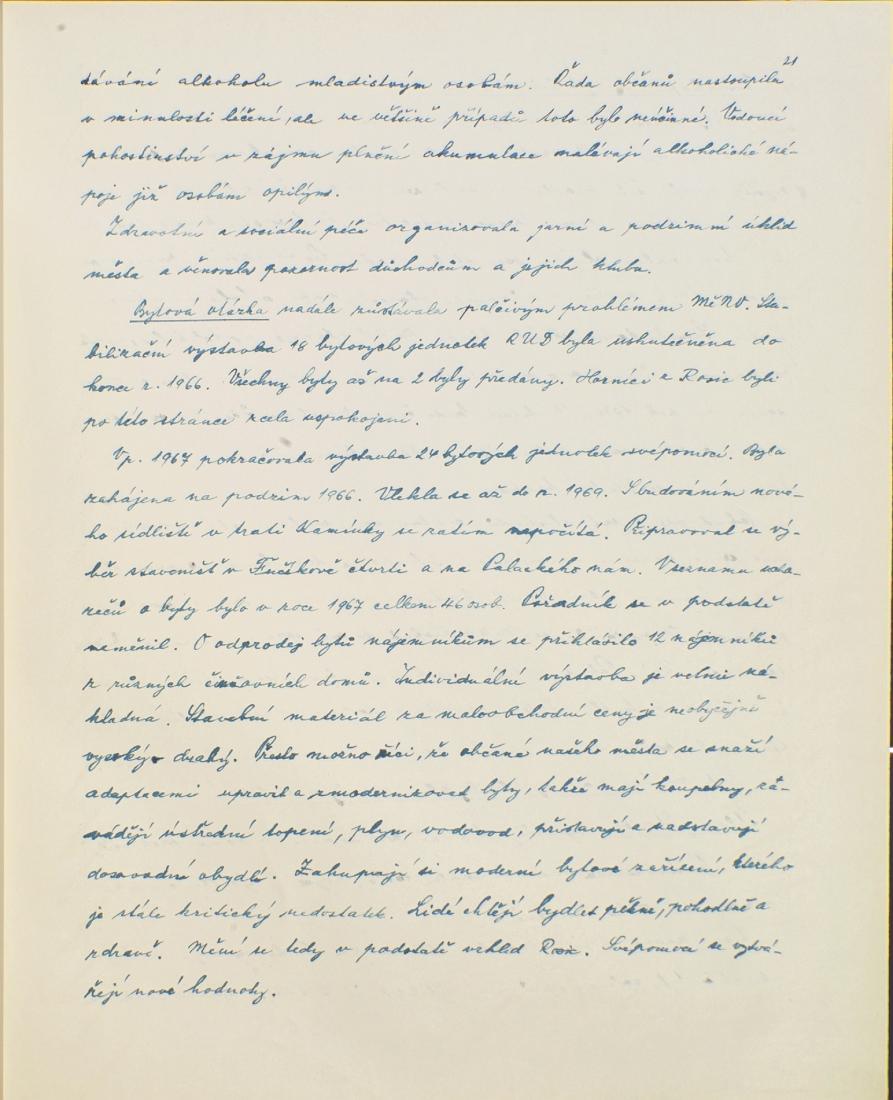 21
dávání alkoholu mladistvým osobám. Řada občanů nastoupila
v minulosti léčení, ale ve většině případů toto bylo neúčinné. Vedoucí
pohostinství v zájmu plnění akumulace nalévají alkoholické ná-
poje již osobám opilým.
Zdravotní a sociální péče organizovala jarní a podzimní úklid
města a věnovala pozornost důchodcům a jejich klubu.
Bytová otázka nadále zůstávala palčivým problémem MěNV. Sta-
bilizační výstavba 18 bytových jednotek RUD byla uskutečněna do
konce r. 1966. Všechny byty až na 2 byly předány. Horníci z Rosic byli
po této stránce zcela uspokojeni.
V r. 1967 pokračovala výstavba 24 bytových jednotek svépomocí. Byla
zahájena na podzim 1966. Vlekla se až do r. 1969. S budováním nové-
ho sídliště v trati Kamínky se zatím nepočítá. Připravoval se vý-
běr stavenišť v Fučíkově čtvrti a na Palackého nám. V seznamu ucha-
zečů o byty bylo v roce 1967 celkem 46 osob. Pořadník se v podstatě
neměnil. O odprodej bytů nájemníkům se přihlásilo 12 nájemníků
z různých činžovních domů. Individuální výstavba je velmi ná-
kladná. Stavební materiál za maloobchodní ceny je neobyčejně
drahý. Přesto možno říci, že občané našeho města se snaží
adaptacemi upravit a zmodernizovat byty, takže mají koupelny, za-
vádějí ústřední topení, plyn, vodovod, přistavují a nadstavují
dosavadní obydlí. Zakupují si moderní bytové zařízení, kterého
je stále kritický nedostatek. Lidé chtějí bydlet pěkně, pohodlně a
zdravě. Mění se tedy v podstatě vzhled Rosic. Svépomocí se vytvá-
řejí nové hodnoty.